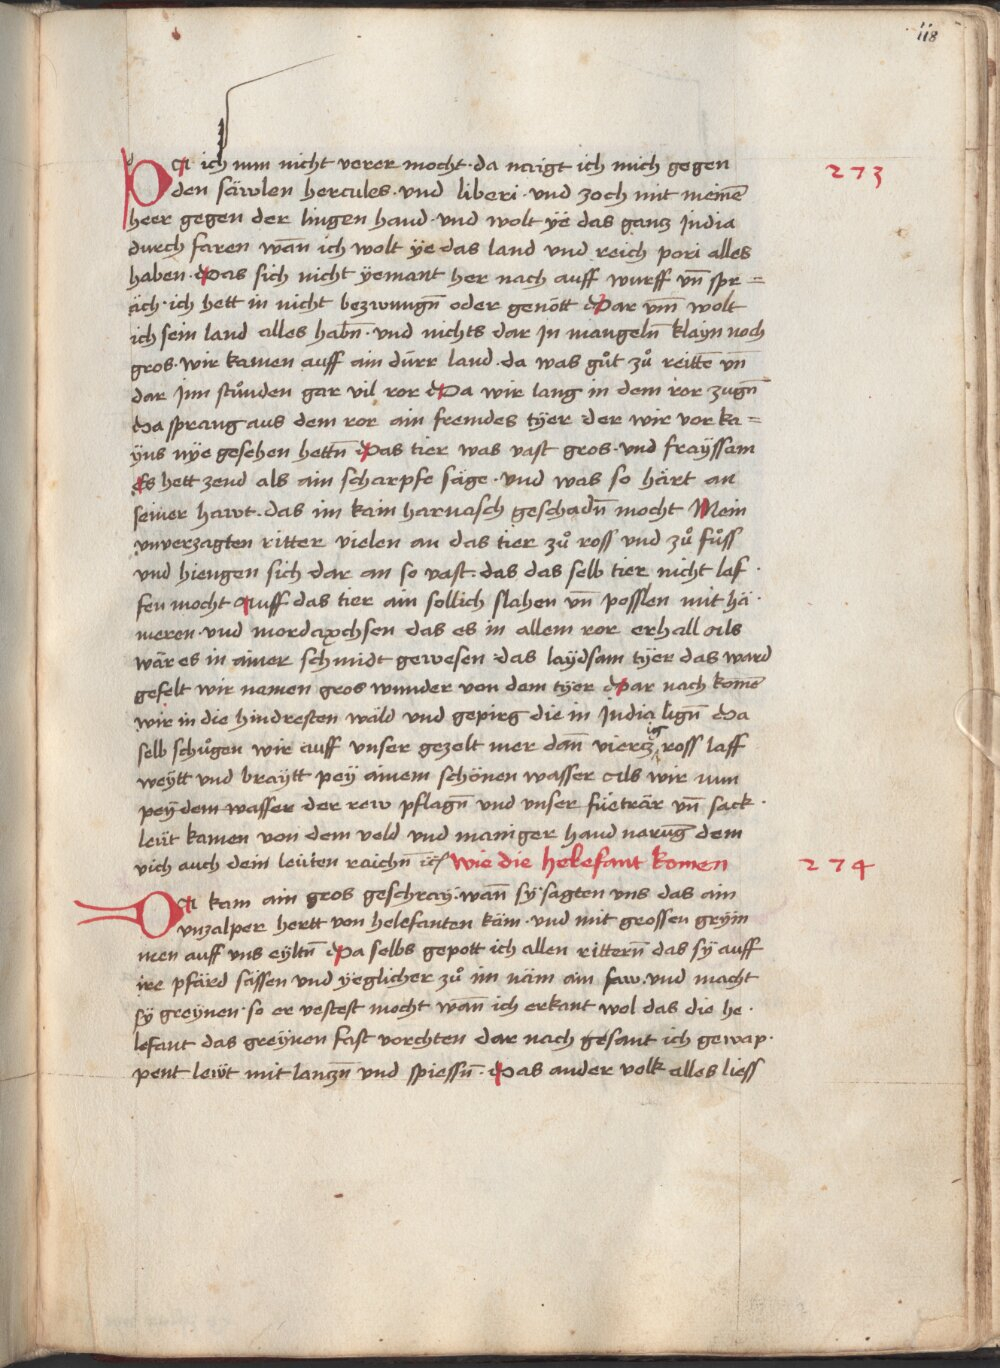 118
DA ich nun nicht verer mocht · da naigt ich mich gegen
273
den säwlen hercules · vnd liberi · vnd zoch mit meinē
heer gegen der lingen hand · vnd wolt ye das ganz Jndia
durch faren wañ ich wolt ÿe das land vnd reich pori alles
haben · Das sich nicht ÿemant her nach auff wurff vn̄ spr =
äch · ich hett in nicht bezwungn̄ oder genött Dar vm̄ wolt
ich sein land alles habn̄ · vnd nichts dar Jn mangeln̄ klayn noch
gros · wir kamen auff ain dürr land · da was gůt zů reittē vn̄
dar Jnn stůnden gar vil ror Da wir lang in dem ror zugn̄
Da sprang aus dem ror ain fremdes tÿer der wir vor ka =
ÿns nÿe gesehen hettn̄ Das tier was vast gros · vnd fraÿssam
Es hett zend als ain scharpfe säge · vnd was so härt an
seiner hawt · das im kain harnasch geschadn̄ mocht Mein
vnverzagten ritter vielen an das tier zů ross vnd zů fůss
vnd hiengen sich dar an so vast · das das selb tier nicht laf ·
fen mocht Auff das tier ain sollich slahen vn̄ posslen mit hä ·
meren · vnd mordaxchsen das es in allem ror erhall als
wär es in ainer schmidt gewesen das laÿdsam tÿer das ward
gefelt wir namen gros wunder von dem tÿer Dar nach komē
wir in die hindresten wäld vnd gepirg die in Jndia lign̄ Da
selb schůgen wir auff vnser gezelt mer dañ viertzig ross laff
weÿtt vnd braÿtt peÿ ainem schönen wasser als wir nun
peÿ dem wasser der rew pflagn̄ vnd vnser fueträr vn̄ sack ·
leüt kamen von dem veld vnd maniger hand narūg dem
vich auch dein leüten raichn̄ ⁊c̃ Wie die helefant komen
274
DA kam ain gros geschray · wañ sÿ sagten vns das ain
vnzalper hertt von helefanten käm · vnd mit grossen gryin
men auff vns eÿltn̄ Da selbs gepott ich allen rittern̄ das sÿ auff
ire pfärd sässen vnd ÿeglicher zů im näm ain saw · vnd macht
sÿ greÿnen · so er vestest mocht wañ ich erkant wol das die he ·
lefant das greÿnen fast vorchten dar nach gesant ich gewap ·
pent lewt mit lanzn̄ vnd spiessn̄ · Das ander volk alles liess